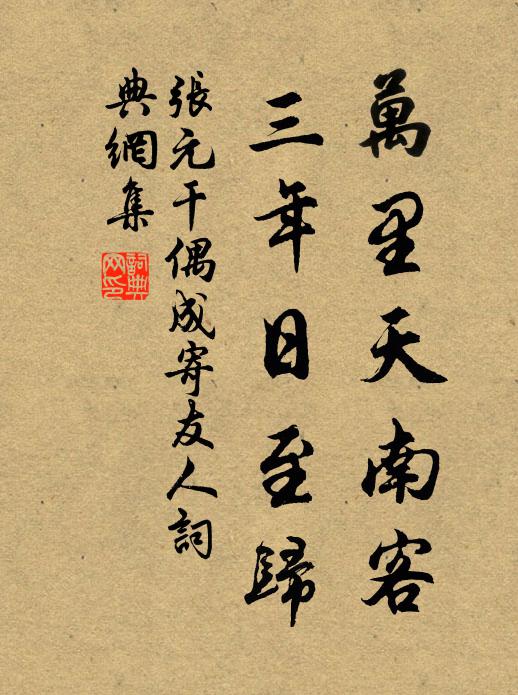 萬里天南客
三年日至歸
張元干偶成寄友人詞
典網集
詞典網印